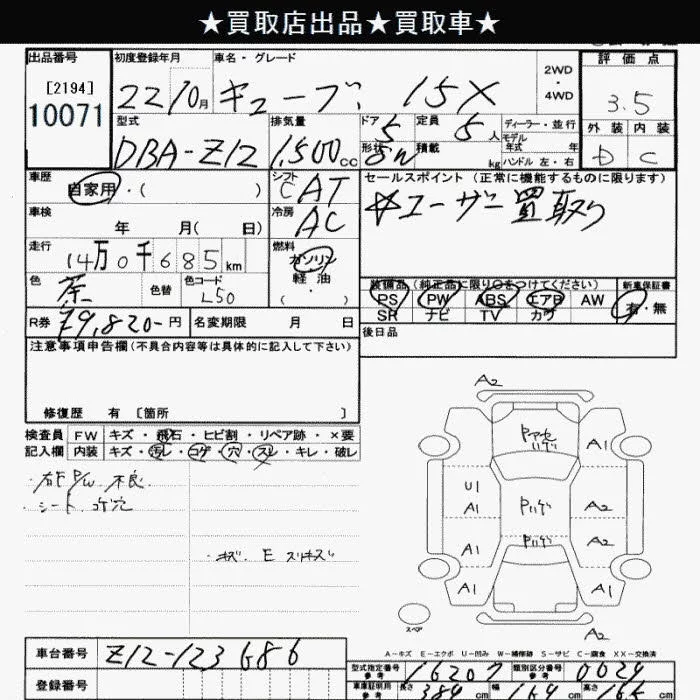 ★買取店出品★買取車★
出品番号 初度登録年月 車名・グレード 2WD・4WD 評価点
[2194] 22 10月 キューブ 15X 3.5
10071
型式 排気量 ドア 定員 ディーラー・並行 外装 内装
DBA-Z12 1,500cc 5 5人 モデル年式 年 D C
形状 5W 積載 kg ハンドル 左・右
車歴 シフト セールスポイント (正常に機能するものに限ります)
自家用・( ) CAT ☆ユーザー買取り
車検 冷房
年 月( 日) AC
走行 燃料
14万0千685km ガソリン
色 色替 色コード 軽油
茶 L50 ( ・ )
装備品 (純正品に限り○をつけてください) 新車保証書
PS PW ABS エアB AW 有・無
SR ナビ TV カワ
R券 79,820-円 名変期限 月 日 後日品
注意事項申告欄(不具合内容等は具体的に記入して下さい)
修復歴 有 〔箇所 〕
検査員 FW キズ・飛石・ヒビ割・リペア跡・×要
記入欄 内装 キズ・汚レ・コゲ・穴・スレ・キレ・破レ
・右F P/W 不良
・シート コゲ穴
・キズ E スリキズ
A2
Pアセハゲ
A1 A1
U1
A1 Pハゲ A2
A1 Pハゲ A2
A1 A1
スペア
A2
A-キズ E-エクボ U-凹み W-補修跡 S-サビ C-腐食 XX-交換済
車台番号 Z12-123686
型式指定番号 参考 16207 類別区分番号 参考 0024
登録番号
車庫証明用 参考 長さ 389cm 幅 169cm 高さ 165cm